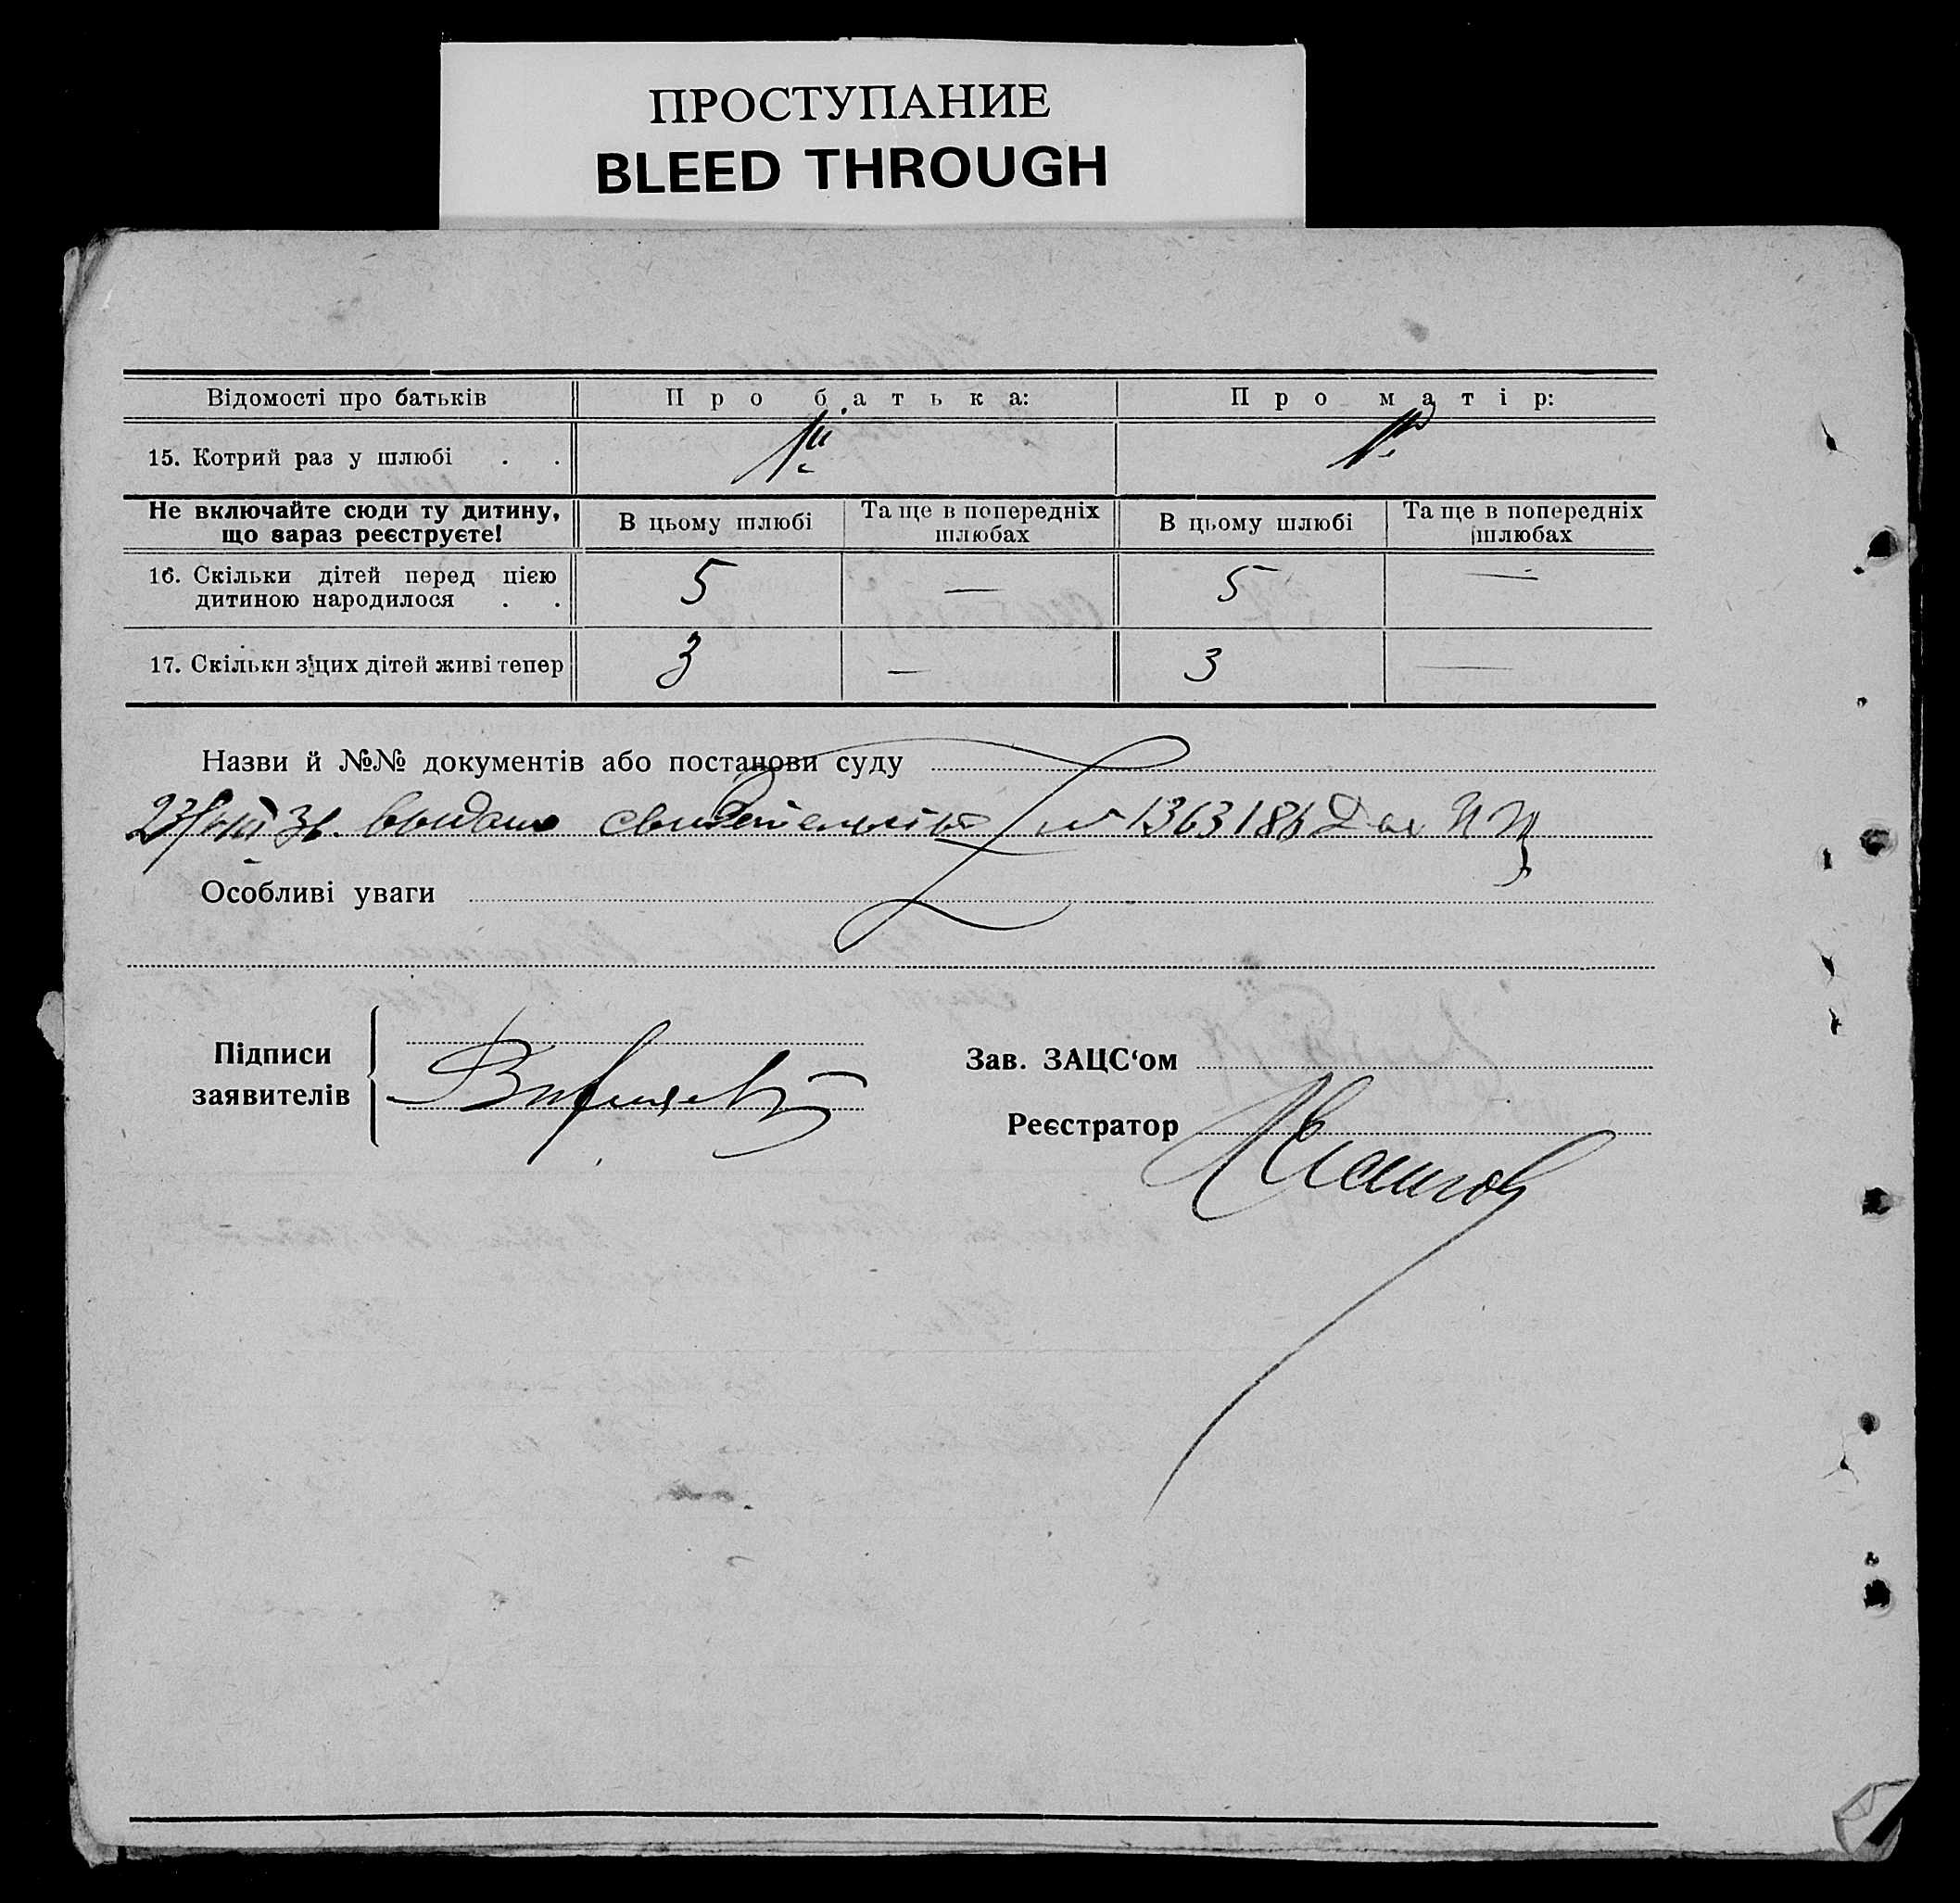 ПРОСТУПАНИЕ
BLEED THROUGH
Відомості про батьків Про батька: Про матір:
15. Котрий раз у шлюбі . .
Не включайте сюди ту дитину,
що зараз реєструєте!
В цьому шлюбі Та ще в попередніх
шлюбах
В цьому шлюбі Та ще в попередніх
шлюбах
16. Скільки дітей перед цією
дитиною народилося . .
5 — 5 —
17. Скільки з цих дітей живі тепер 3 — 3 —
Назви й №№ документів або постанови суду
23/VIII выдано свидетельство № 136318
Особливі уваги
Підписи
заявителів
Зав. ЗАЦС‘ом
Реєстратор